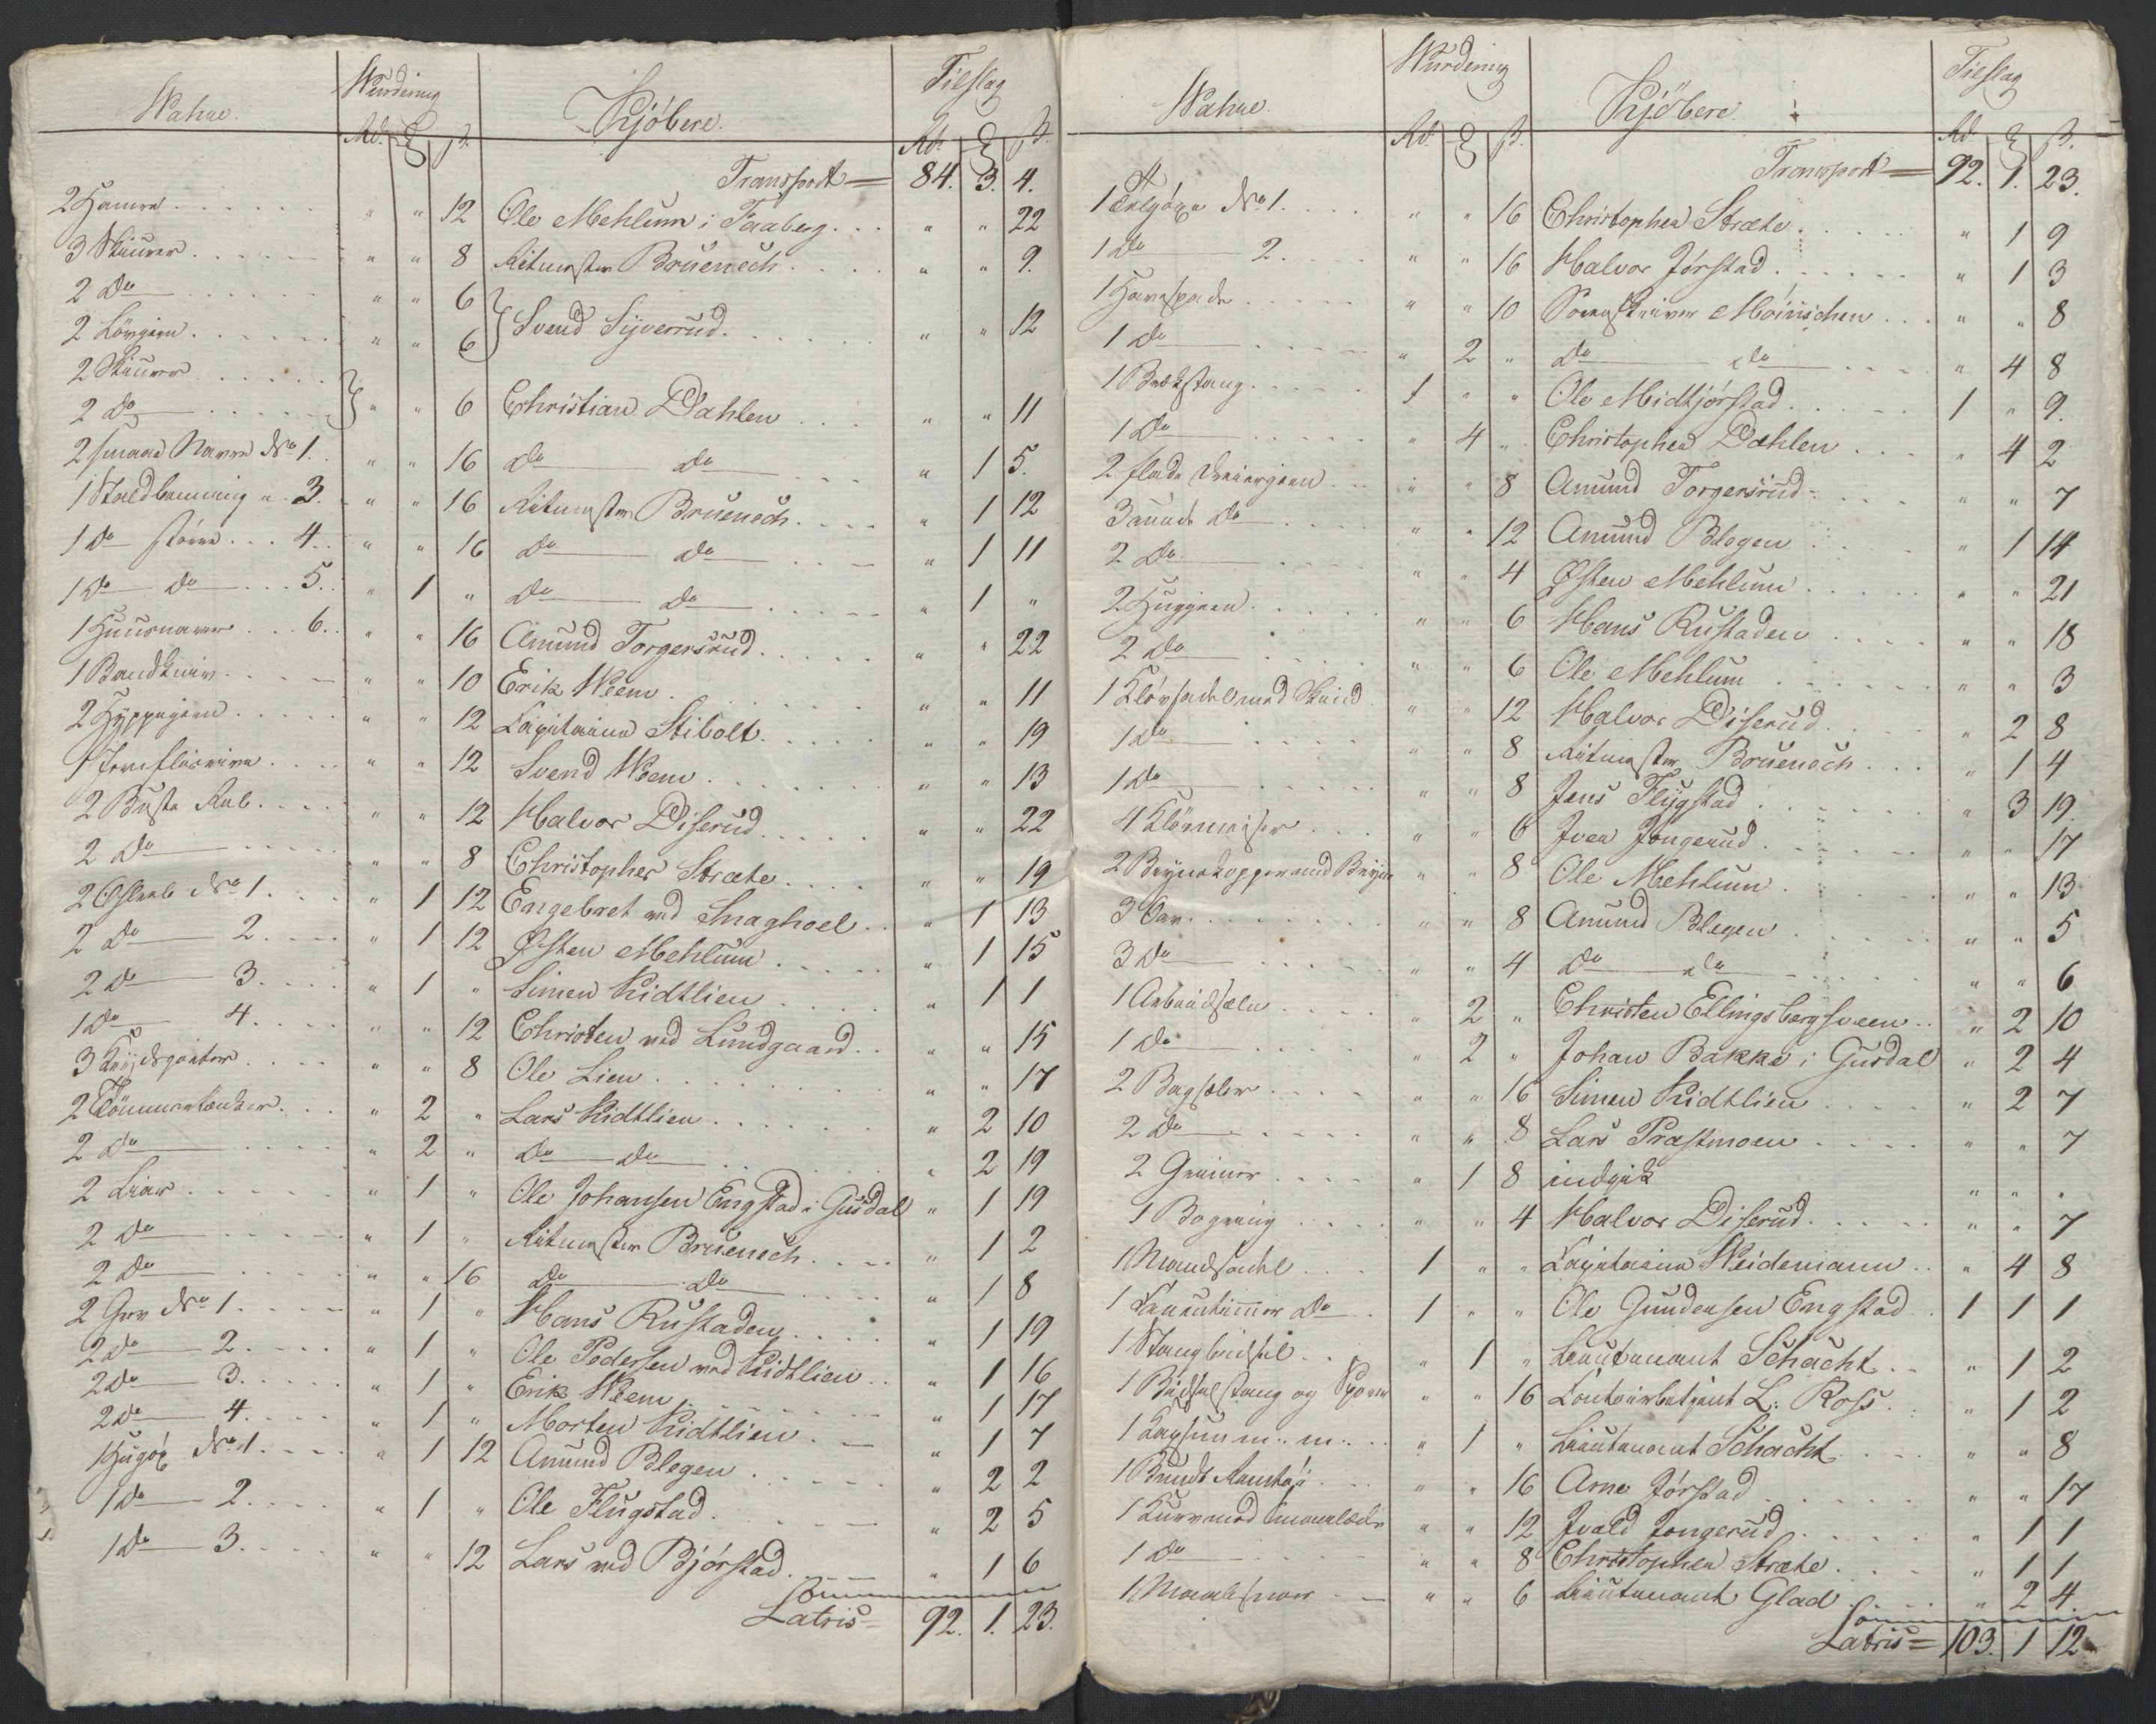 Nahne. Wurdering Kjöbere. Tilslag
Rd. ß. Rd. ß.
Transport = 84. 3. 4.
2 Hamre . . . " " 12 Ole Mehlum i Faaberg . . . " " 22
3 Skaurer . . . " " 8 Ritmester Bruenech . . . " " 9.
2 Do . . . " " 6
2 Lövgien . . . " " 6 } Svend Sijverrud . . . " " 12
2 Skaurer . . .
2 Do . . . } " " 6 Christian Dahlen . . . " " 11
2 smaae Navre No 1. " " 16 Do Do . . . " 1 5.
1 " 3. " " 16 Ritmester Bruenech . . . " 1 12
1 Do större . . . 4. " " 16 Do Do . . . " 1 11
1 Do Do . . . 5. " 1 " Do Do . . . " 1 "
1 Huusnaver . . . 6. " " 16 Amund Torgersrud . . . " " 22
1 Bandkniv . . . " " 10 Erik Weem . . . " " 11
2 . . . " " 12 Capitaine Stibolt . . . " " 19
1 . . . " " 12 Svend Weem . . . " " 13
2 . . . " " 12 Halvor Diserud . . . " " 22
2 Do . . . " " 8 Christopher Stræte . . . " " 19
2 No 1. . . " 1 12 Engebret ved Smaghoel . . " 1 13
2 Do 2. . . " 1 12 Østen Mehlum . . . " 1 15
2 Do 3. . . " 1 " Simen Kidtlien . . . " 1 1
1 Do 4. . . " " 12 Christen ved Lundgaard . . " " 15
3 . . . " " 8 Ole Lien . . . " " 17
2 Tömmerlænker . . . " 2 " Lars Kidtlien . . . " 2 10
2 Do . . . " 2 " Do Do . . . " 2 19
2 Liar . . . " 1 " Ole Johansen Engstad i Gusdal " 1 19
2 Do . . . " 1 " Ritmester Bruenech . . . " 1 2
2 Do . . . " " 16 Do Do . . . " 1 8
2 Grev No 1. . . " 1 " Hans Rustaden . . . " 1 19
2 Do 2. . . " 1 " Ole Pedersen ved Kidtlien . . " 1 16
2 Do 3. . . " 1 " Erik Weem . . . " 1 17
2 Do 4. . . " 1 " Morten Kidtlien . . . " 1 7
1 No 1. . . " 1 12 Amund Blegen . . . " 2 2
1 Do 2. . . " 1 " Ole Flugstad . . . " 2 5
1 Do 3. . . " " 12 Lars ved Bjørstad . . . " 1 6
Latris = 92. 1. 23.
Nahne Wurdering Kjöbere Tilslag
Rd. ß. Rd. ß.
Transport = 92. 1. 23.
1 No 1. . . " " 16 Christopher Stræte . . . " 1 9
1 Do 2. . . " " 16 Halvor Jørstad . . . " 1 3
1 . . . " " 10 Sorenskriver Möinichen . . . " " 8
1 Do . . . " 2 " Do Do . . . " 4 8
1 Brækstang . . . 1 " " Ole Midtjørstad . . . 1 " 9.
1 Do . . . " 4 " Christopher Dahlen . . . " 4 2
2 flade . . . " " 8 Amund Torgersrud . . . " " 7
3 runde Do . . . " " 12 Amund Blegen . . . " 1 14
2 Do . . . " " 4 Østen Mehlum . . . " " 21
2 . . . " " 6 Hans Rustaden . . . " " 18
2 Do . . . " " 6 Ole Mehlum . . . " " 3
1 Klövsadel med Skind " " 12 Halvor Diserud . . . " 2 8
1 Do . . . " " 8 Ritmester Bruenech . . . " 1 4
1 Do . . . " " 8 Jens Flygstad . . . " 3 19.
4 . . . " " 6 Iver Jongerud . . . " " 17
2 Brynekopper med Bryne " " 8 Ole Mehlum . . . " " 13
3 . . . " " 8 Amund Blegen . . . " " 5
3 Do . . . " " 4 Do Do . . . " " 6
1 Arbeidsæle . . . " 2 " Christen Ellingsbergsveen . . " 2 10
1 Do . . . " 2 " Johan Bakke i Gusdal " 2 4
2 Bagsæler . . . " " 16 Simen Kidtlien . . . " 2 7
2 Do . . . " " 8 Lars Prastmoen . . . " " 7
2 Greimer . . . " 1 8 indgik " " "
1 . . . " " 4 Halvor Diserud . . . " " 7
1 Mandsadel . . . 1 " " Capitaine Weidemann . . " 4 8
1 Do . . 1 " " Ole Gundersen Engstad . 1 1 1
1 Stangbeidsel . . . " 1 " Lieutenant Schacht . . " 1 2
1 Bidselstang og Sporer " " 16 L. Ross . . " 1 2
1 m. m. . . " 1 " Lieutenant Schacht . . . " " 8
1 Bundt . . . " " 16 Arne Jørstad . . . " " 17
1 Kurv med " " 12 Ivald Jongerud . . . " 1 1
1 Do . . . " " 8 Christopher Stræte . . . " 1 1
1 Maalesnor . . . " " 6 Lieutenant Glad . . . " 2 4.
Latris = 103. 1 12.